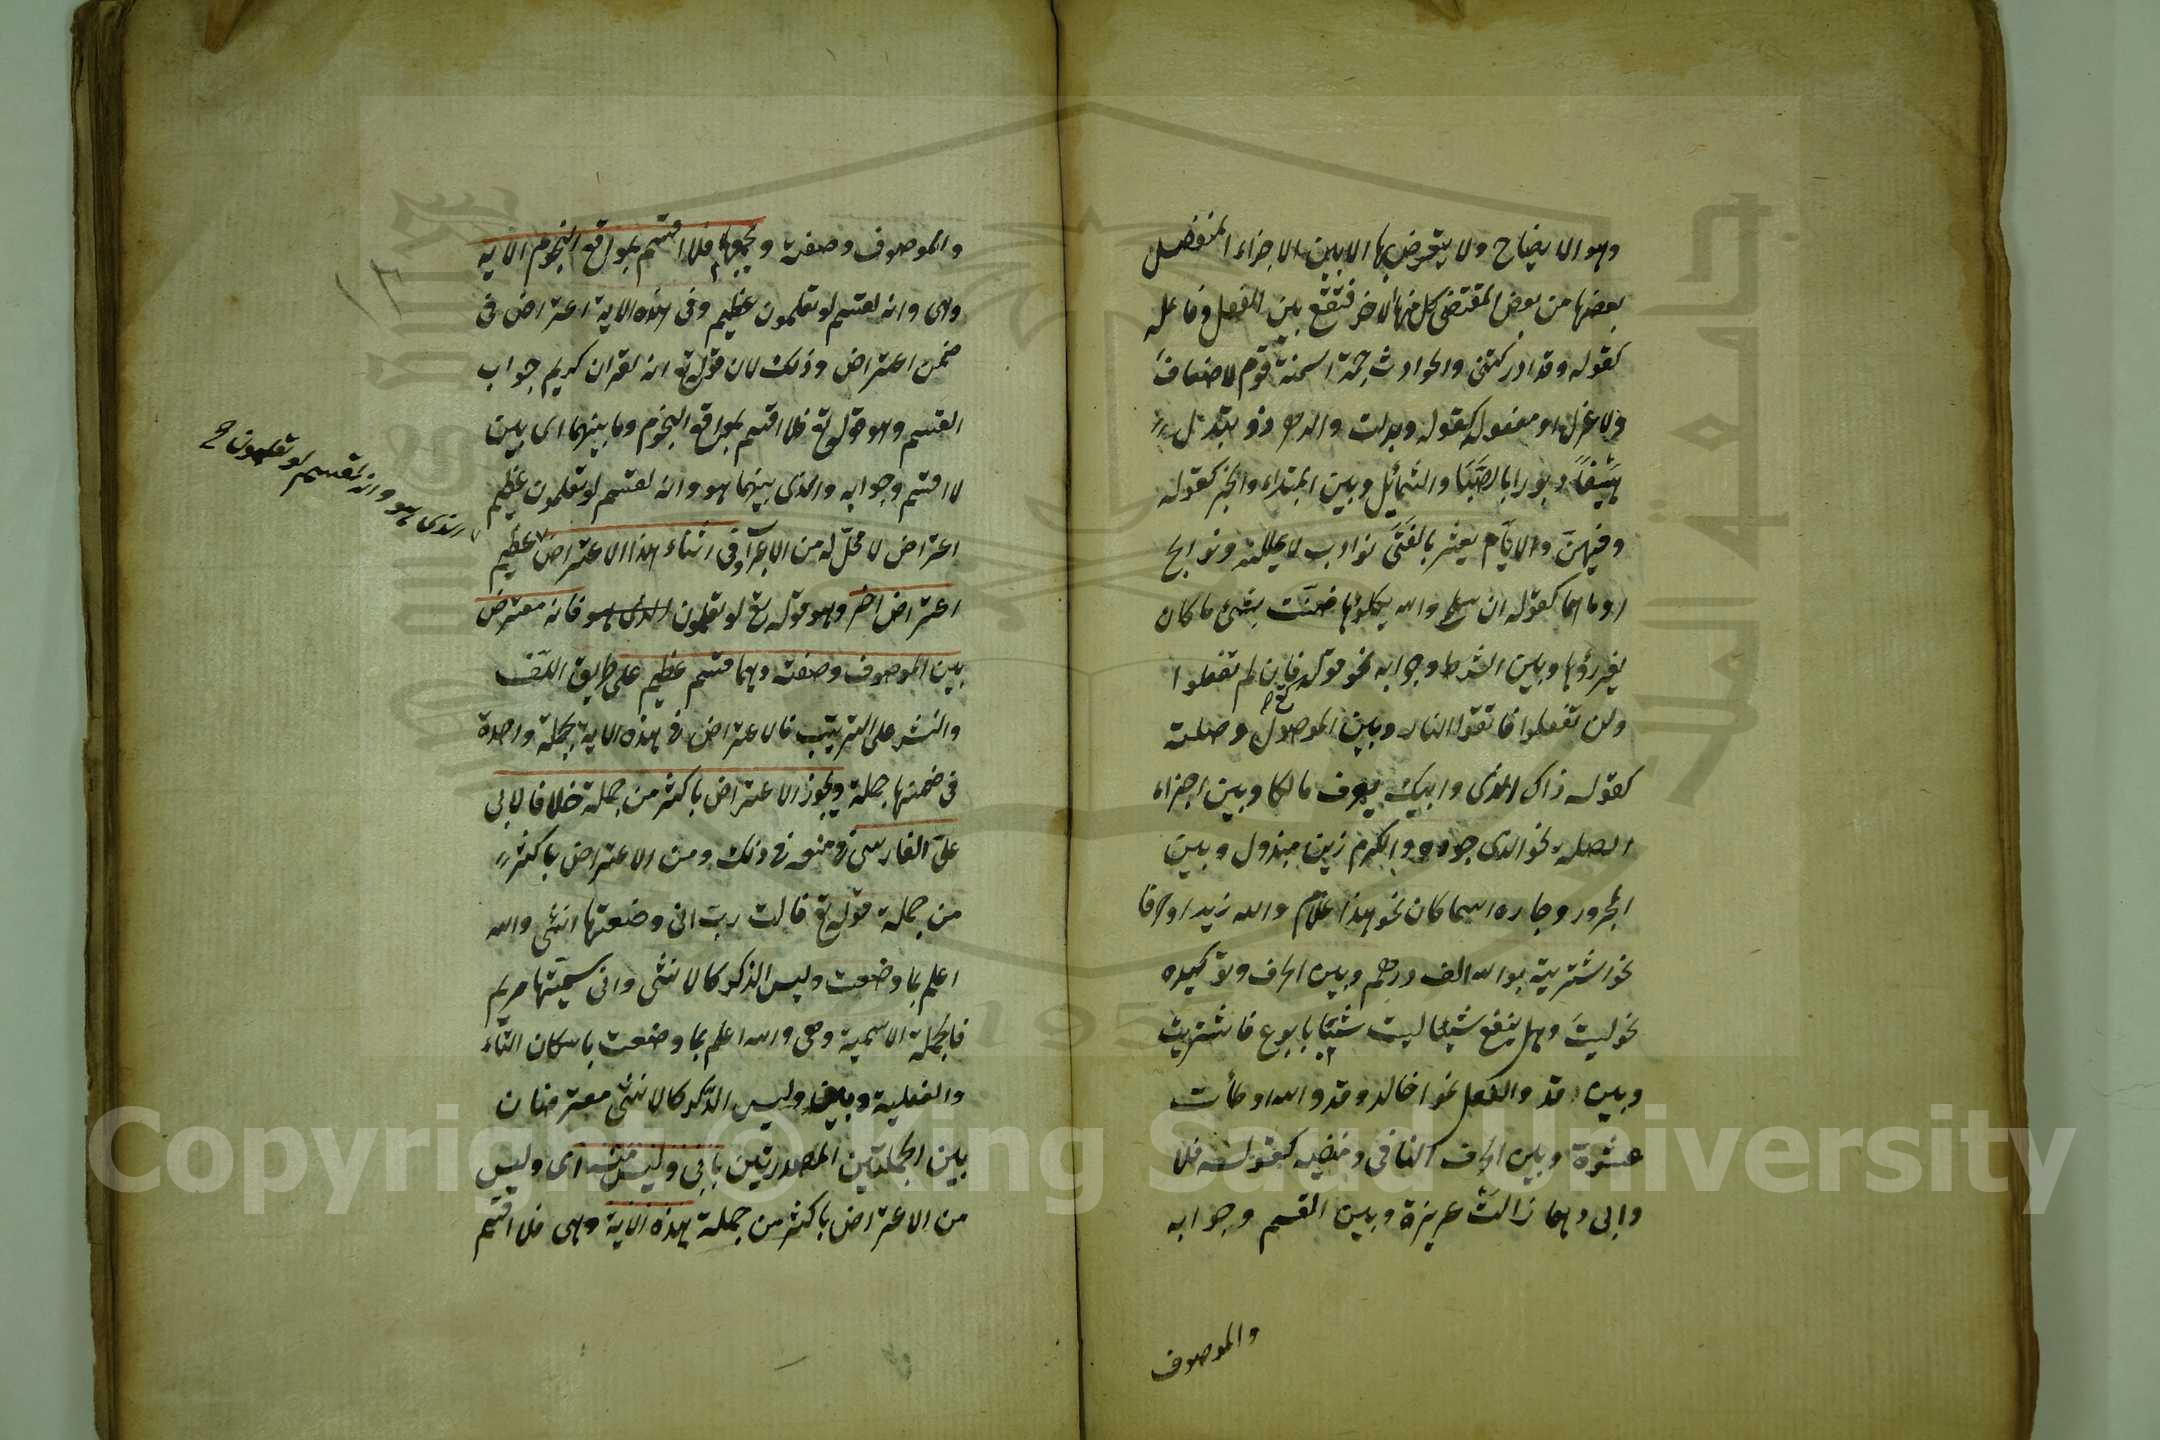 وهو الايضاح ولا يعترض بها الا بين الاجزاء المنفصل
بعضها من بعض المقتضى كل منها الاخر فتقع بين الفعل وفاعله
كقوله وقد ادركتنى والحوادث جمة اسنة قوم لا ضعاف
ولا عزل او مفعوله كقوله وبدلت والدهر ذو تبدل
هيفا دبورا بالصبا والشمائل وبين المبتداء والخبر كقوله
وفيهن والايام يعثر بالفتى نوادب لا يمللنه ونوايح
او ما اصله كقوله ان سلمى والله يكلؤها ضنت بشئ ما كان
يرزؤها وبين الشرط وجوابه نحو قوله تع فان لم تفعلوا
ولن تفعلوا فاتقوا النار وبين الموصول وصلته
كقوله ذاك الذى وابيك يعرف مالكا وبين اجزاء
الصلة نحو الذى جوده والكرم زين مبذول وبين
المجرور وجاره اسما كان نحو هذا غلام والله زيد او حرفا
نحو اشتريته بوالله الف درهم وبين الحرف وتوكيده
نحو ليت وهل ينفع شيئا ليت شبابا بوع فاشتريت
وبين قد والفعل نحو اخالد وقد والله اوطأت
عشوة وبين الحرف النافى ومنفيه كقوله فلا
وابى دهماء زالت عزيزة وبين القسم وجوابه
والموصوف
والموصوف وصفته ويجمعهما فلا اقسم بمواقع النجوم الاية
وهى وانه لقسم لو تعلمون عظيم وفى هذه الاية اعتراض فى
ضمن اعتراض وذلك لان قوله تع انه لقران كريم جواب
القسم وهو قوله تع فلا اقسم بمواقع النجوم وما بينهما اى بين
لا اقسم وجوابه والذى بينهما هو وانه لقسم لو تعلمون عظيم
اعتراض لا محل له من الاعراب وفى اثناء هذا الاعتراض عظيم
اعتراض اخر وهو قوله تع لو تعلمون الذى هو فانه معترض
بين الموصوف وصفته وهما قسم عظيم على طريق اللف
والنشر على الترتيب فالاعتراض فى هذه الاية بجملة واحدة
فى ضمنها جملة ويجوز الاعتراض باكثر من جملة خلافا لابى
على الفارسى فى منعه فى ذلك ومن الاعتراض باكثر
من جملة قوله تع قالت رب انى وضعتها انثى والله
اعلم بما وضعت وليس الذكر كالانثى وانى سميتها مريم
فالجملة الاسمية وهى والله اعلم بما وضعت باسكان التاء
والفعلية وليس الذكر كالانثى معترضتان
بين الجملتين المصدرتين بانى وليس منه اى وليس
من الاعتراض باكثر من جملة هذه الاية وهى فلا اقسم
الذى هو وانه لقسم لو تعلمون صح
Copyright © King Saud University